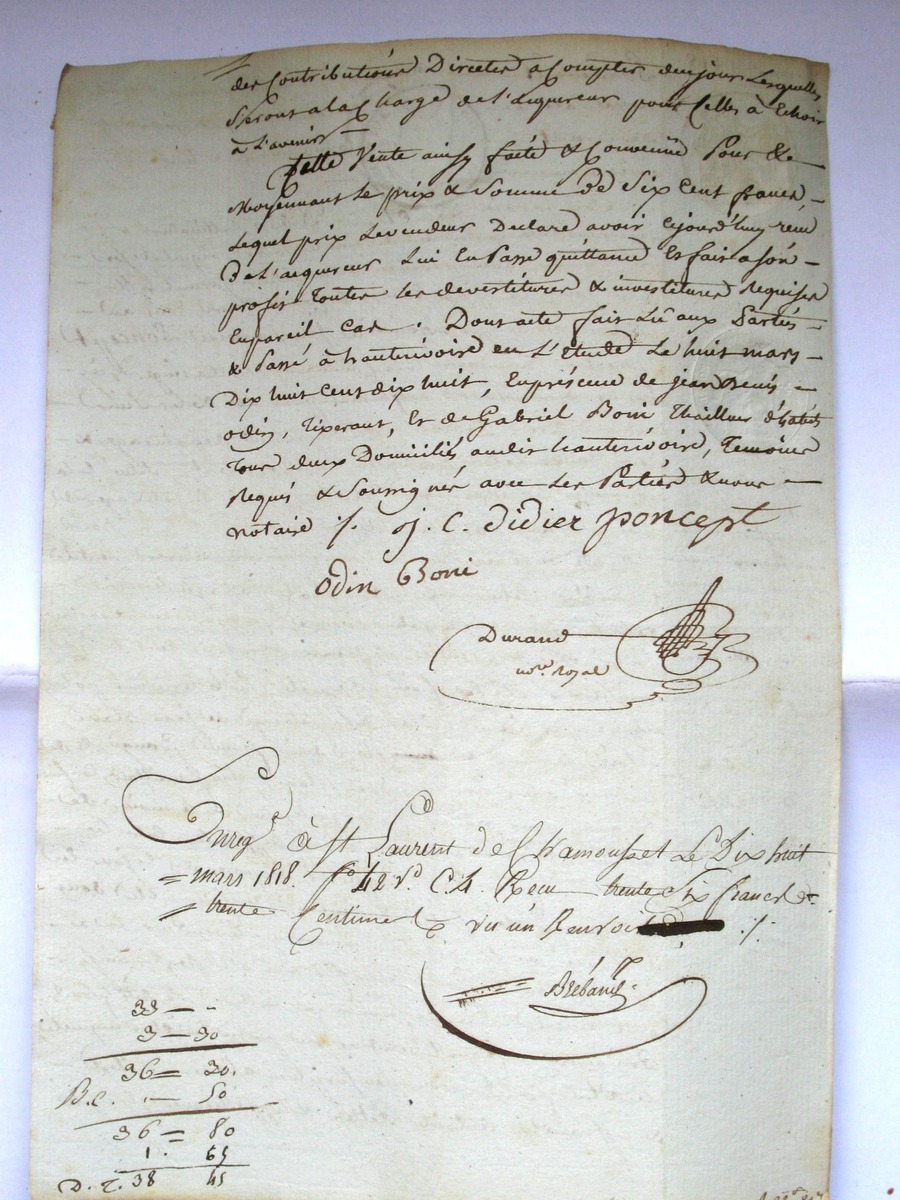 des Contributions Directes a Compter du jour Lesquelles
Seront a la Charge de l'aquereur pour Celles à Echoir
à L'avenir —
Cette Vente ainsy faite & Convenüe Pour &
Moyennant Le prix & Somme de Six Cent francs,
Lequel prix Levendeur Declare avoir
De L'aequereur Lui En Passe quittance Et fait a son
profit Toutes les devestitures & investitures Requises
En pareil Cas. Dont acte fait Lû aux Parties
& Passé à hauterivoire en L'Etude Le huit mars
Dix huit Cent dix huit, En présence de jean Denis
odin, Tixerant, Et de Gabriel Boni Thailleur d'habits
Tous deux Domiciliés audit hauterivoire, Temoins
Requis & Soussignés avec Les Parties & nous
notaire /. j. C. didier poncept
Odin Boni
Durand
no.re Royal
Enreg.é à St Laurent de Chamousset Le Dix huit
mars 1818. f.o 42 v.o C. 4. Recu trente Six francs
trente Centimes vu un Renvoi ./.
33 — -
3 — 30
36 = 30.
B.C. . — 50
36 = 80
1. 65
D. T. 38 45